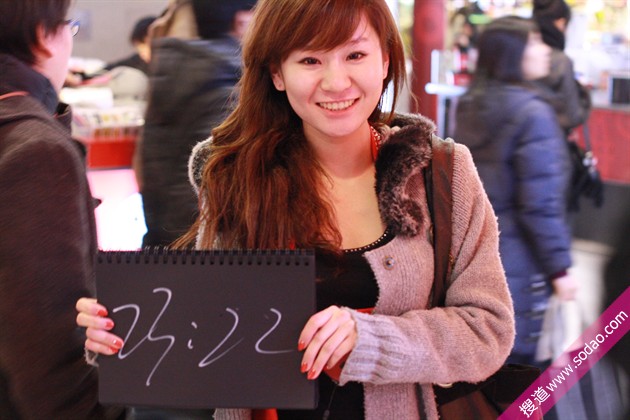 23:22
搜道 www.sodao.com